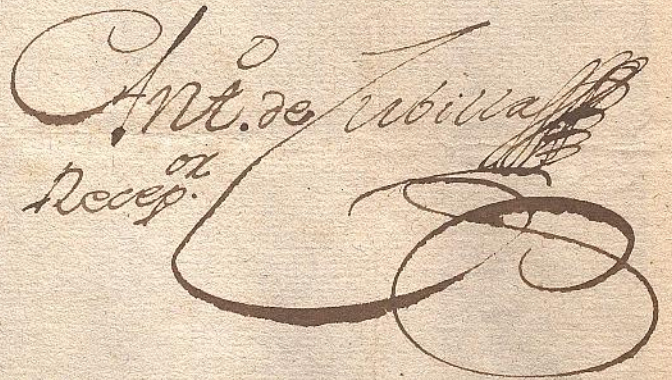 Ant.º de Jubilla
Recep.or